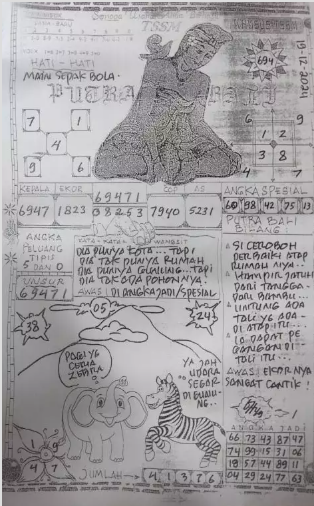 TRSM
HATI - HATI
MAIN SEPAK BOLA.
694
19-12-2024
PUTRA BALI
7 1
4
9 6
6 9
1 2
3 8
4 7
KEPALA EKOR
6947 1823
69471
08253
COP AS
7940 5231
ANGKA SPESIAL
60 98 42 75 13
PUTRA BALI
BILANG
ANGKA
PELUANG
TIPIS
5 DAN 0
UNSUR
69471
KATA - KATA WANGSIT
DIA PUNYA KOTA... TAPI
DIA TAK PUNYA RUMAH
DIA PUNYA GUNUNG... TAPI
DIA TAK ADA POHONNYA.
AWAS! DI ANGKA JADI/SPESIAL
SI CEROBOH
PERBAIKI ATAP
RUMAH NYA..
HAMPIR JATUH
DARI TANGGA
DARI BAMBU...
UNTUNG ADA
TALI YG ADA
DI ATAP ITU...
IA DAPAT BE
GANGAN DI
TALI ITU...
AWAS! EKOR NYA
SANGAT CANTIK!
05
38
24
PAGI YG
CERIA
ZEBRA
YA JAH
UDARA
SEGAR
DI GUNU
NG..
1 9
4 7
JUMLAH
4 1 3 7 6
ANGKA JADI
66 73 43 87 47
74 99 15 31 06
18 57 44 89 11
04 29 24 77 63